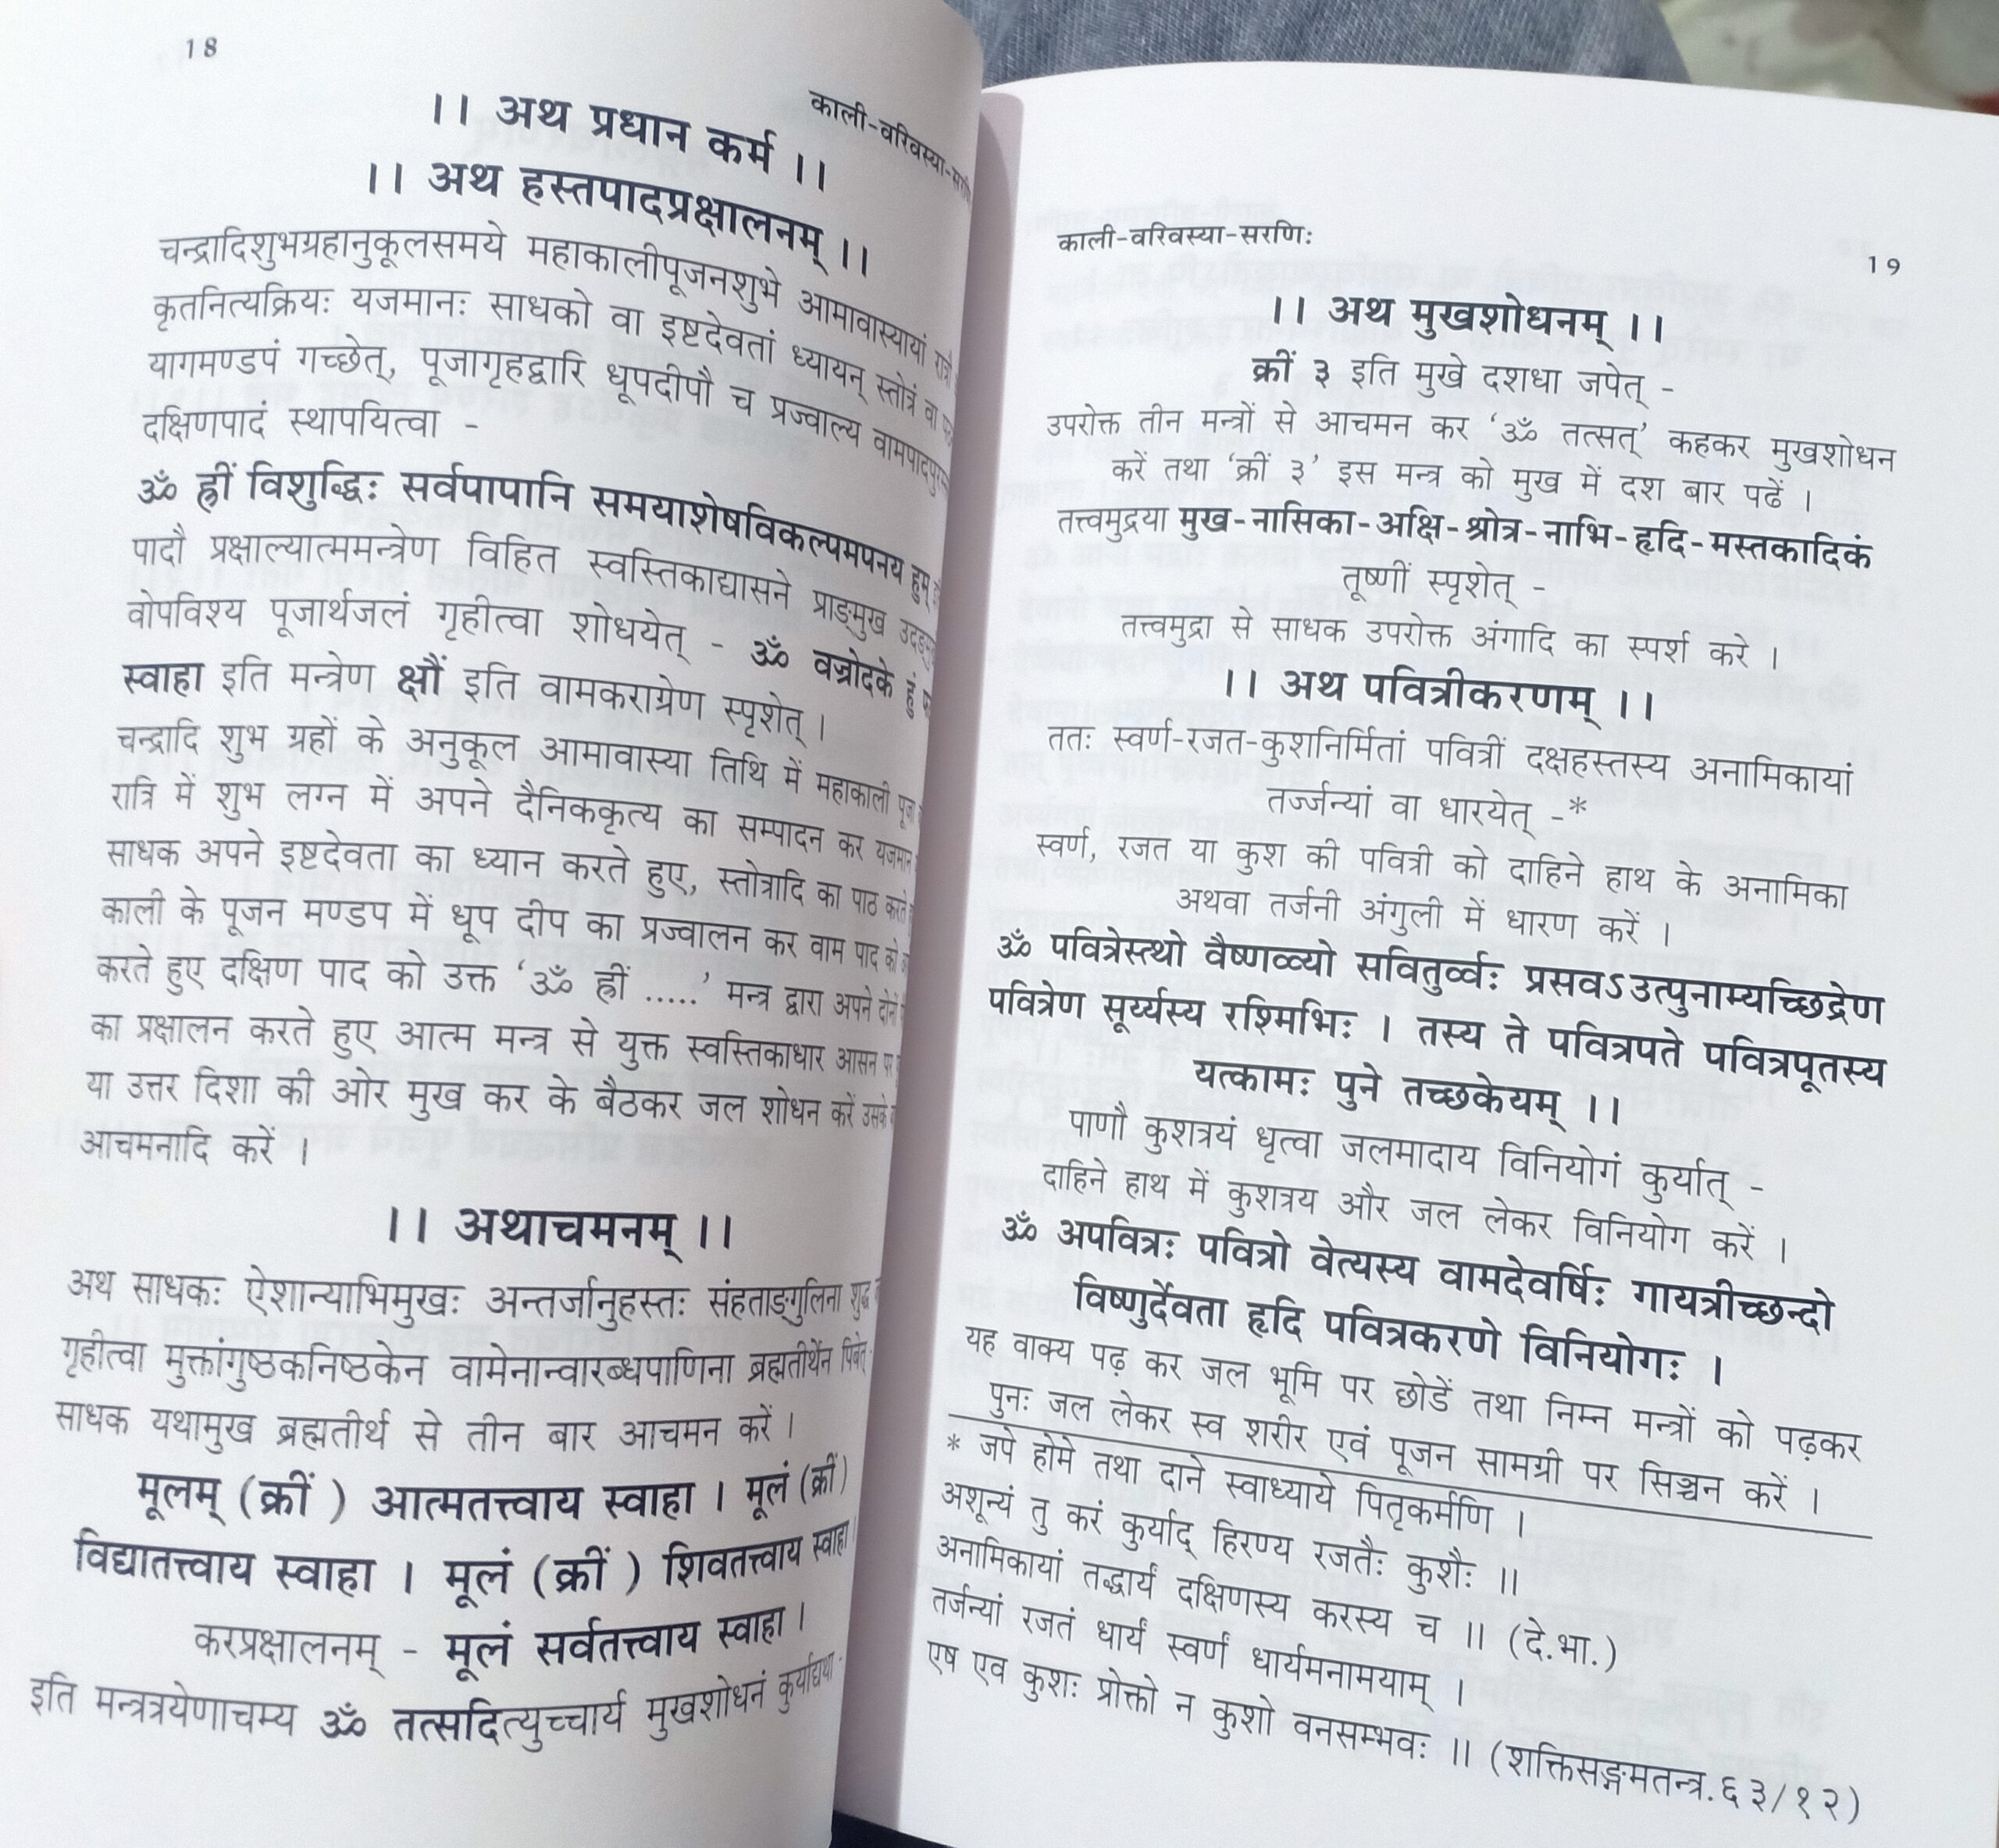 18
काली-वरिवस्या-
।। अथ प्रधान कर्म ।।
।। अथ हस्तपादप्रक्षालनम् ।।
चन्द्रादिशुभग्रहानुकूलसमये महाकालीपूजनशुभे आमावास्यायां रात्रौ
कृतनित्यक्रियः यजमानः साधको वा इष्टदेवतां ध्यायन् स्तोत्रं वा
यागमण्डपं गच्छेत्, पूजागृहद्वारि धूपदीपौ च प्रज्वाल्य
दक्षिणपादं स्थापयित्वा -
ॐ ह्रीं विशुद्धिः सर्वपापानि समयाशेषविकल्पमपनय हुम्
पादौ प्रक्षाल्यात्ममन्त्रेण विहित स्वस्तिकाद्यासने प्राङ्मुख
वोपविश्य पूजार्थजलं गृहीत्वा शोधयेत् - ॐ वज्रोदके हुं
स्वाहा इति मन्त्रेण क्षौं इति वामकराग्रेण स्पृशेत् ।
चन्द्रादि शुभ ग्रहों के अनुकूल आमावास्या तिथि में महाकाली पूजा
रात्रि में शुभ लग्न में अपने दैनिककृत्य का सम्पादन कर यजमान
साधक अपने इष्टदेवता का ध्यान करते हुए, स्तोत्रादि का पाठ करते
काली के पूजन मण्डप में धूप दीप का प्रज्वालन कर वाम पाद को
करते हुए दक्षिण पाद को उक्त ‘ॐ ह्रीं .....’ मन्त्र द्वारा अपने दोनों
का प्रक्षालन करते हुए आत्म मन्त्र से युक्त स्वस्तिकाधार आसन पर
या उत्तर दिशा की ओर मुख कर के बैठकर जल शोधन करें उसके
आचमनादि करें ।
।। अथाचमनम् ।।
अथ साधकः ऐशान्याभिमुखः अन्तर्जानुहस्तः संहताङ्गुलिना शुद्ध
गृहीत्वा मुक्तांगुष्ठकनिष्ठकेन वामेनान्वारब्धपाणिना ब्रह्मतीर्थेन पिबेत्
साधक यथामुख ब्रह्मतीर्थ से तीन बार आचमन करें ।
मूलम् (क्रीं ) आत्मतत्त्वाय स्वाहा । मूलं (क्रीं)
विद्यातत्त्वाय स्वाहा । मूलं (क्रीं ) शिवतत्त्वाय स्वाहा
करप्रक्षालनम् - मूलं सर्वतत्त्वाय स्वाहा ।
इति मन्त्रत्रयेणाचम्य ॐ तत्सदित्युच्चार्य मुखशोधनं कुर्याद्यथा-
काली-वरिवस्या-सरणिः
19
।। अथ मुखशोधनम् ।।
क्रीं ३ इति मुखे दशधा जपेत् -
उपरोक्त तीन मन्त्रों से आचमन कर ‘ॐ तत्सत्’ कहकर मुखशोधन
करें तथा ‘क्रीं ३’ इस मन्त्र को मुख में दश बार पढें ।
तत्त्वमुद्रया मुख-नासिका-अक्षि-श्रोत्र-नाभि-हृदि-मस्तकादिकं
तूष्णीं स्पृशेत् -
तत्त्वमुद्रा से साधक उपरोक्त अंगादि का स्पर्श करे ।
।। अथ पवित्रीकरणम् ।।
ततः स्वर्ण-रजत-कुशनिर्मितां पवित्रीं दक्षहस्तस्य अनामिकायां
तर्ज्जन्यां वा धारयेत् -*
स्वर्ण, रजत या कुश की पवित्री को दाहिने हाथ के अनामिका
अथवा तर्जनी अंगुली में धारण करें ।
ॐ पवित्रेस्त्थो वैष्णव्यो सवितुर्व्वः प्रसवऽउत्पुनाम्यच्छिद्रेण
पवित्रेण सूर्य्यस्य रश्मिभिः । तस्य ते पवित्रपते पवित्रपूतस्य
यत्कामः पुने तच्छकेयम् ।।
पाणौ कुशत्रयं धृत्वा जलमादाय विनियोगं कुर्यात् -
दाहिने हाथ में कुशत्रय और जल लेकर विनियोग करें ।
ॐ अपवित्रः पवित्रो वेत्यस्य वामदेवर्षिः गायत्रीच्छन्दो
विष्णुर्देवता हृदि पवित्रकरणे विनियोगः ।
यह वाक्य पढ़ कर जल भूमि पर छोडें तथा निम्न मन्त्रों को पढ़कर
पुनः जल लेकर स्व शरीर एवं पूजन सामग्री पर सिञ्चन करें ।
* जपे होमे तथा दाने स्वाध्याये पितृकर्मणि ।
अशून्यं तु करं कुर्याद् हिरण्य रजतैः कुशैः ॥
अनामिकायां तद्धार्यं दक्षिणस्य करस्य च ॥ (दे.भा.)
तर्जन्यां रजतं धार्यं स्वर्णं धार्यमनामयाम् ।
एष एव कुशः प्रोक्तो न कुशो वनसम्भवः ॥ (शक्तिसङ्गमतन्त्र.६३/१२)